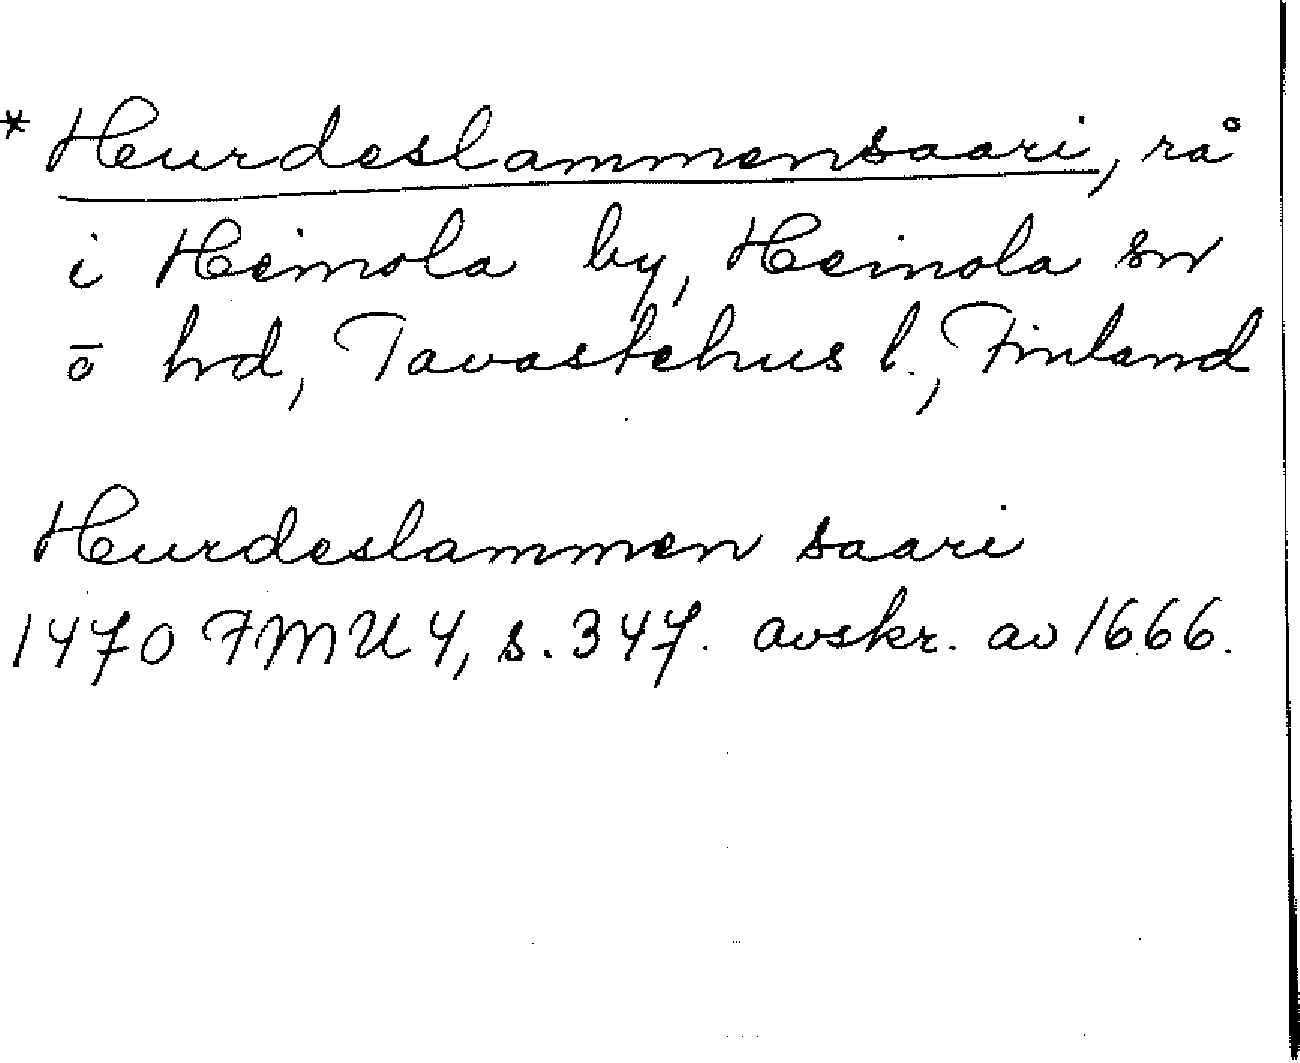 * Heurdeslammensaari, rå
i Heimola by, Heinola sn
o hd, Tavastehus l., Finland
Heurdeslammen saari
1470 FMU 4, s. 347. avskr. av 1666.